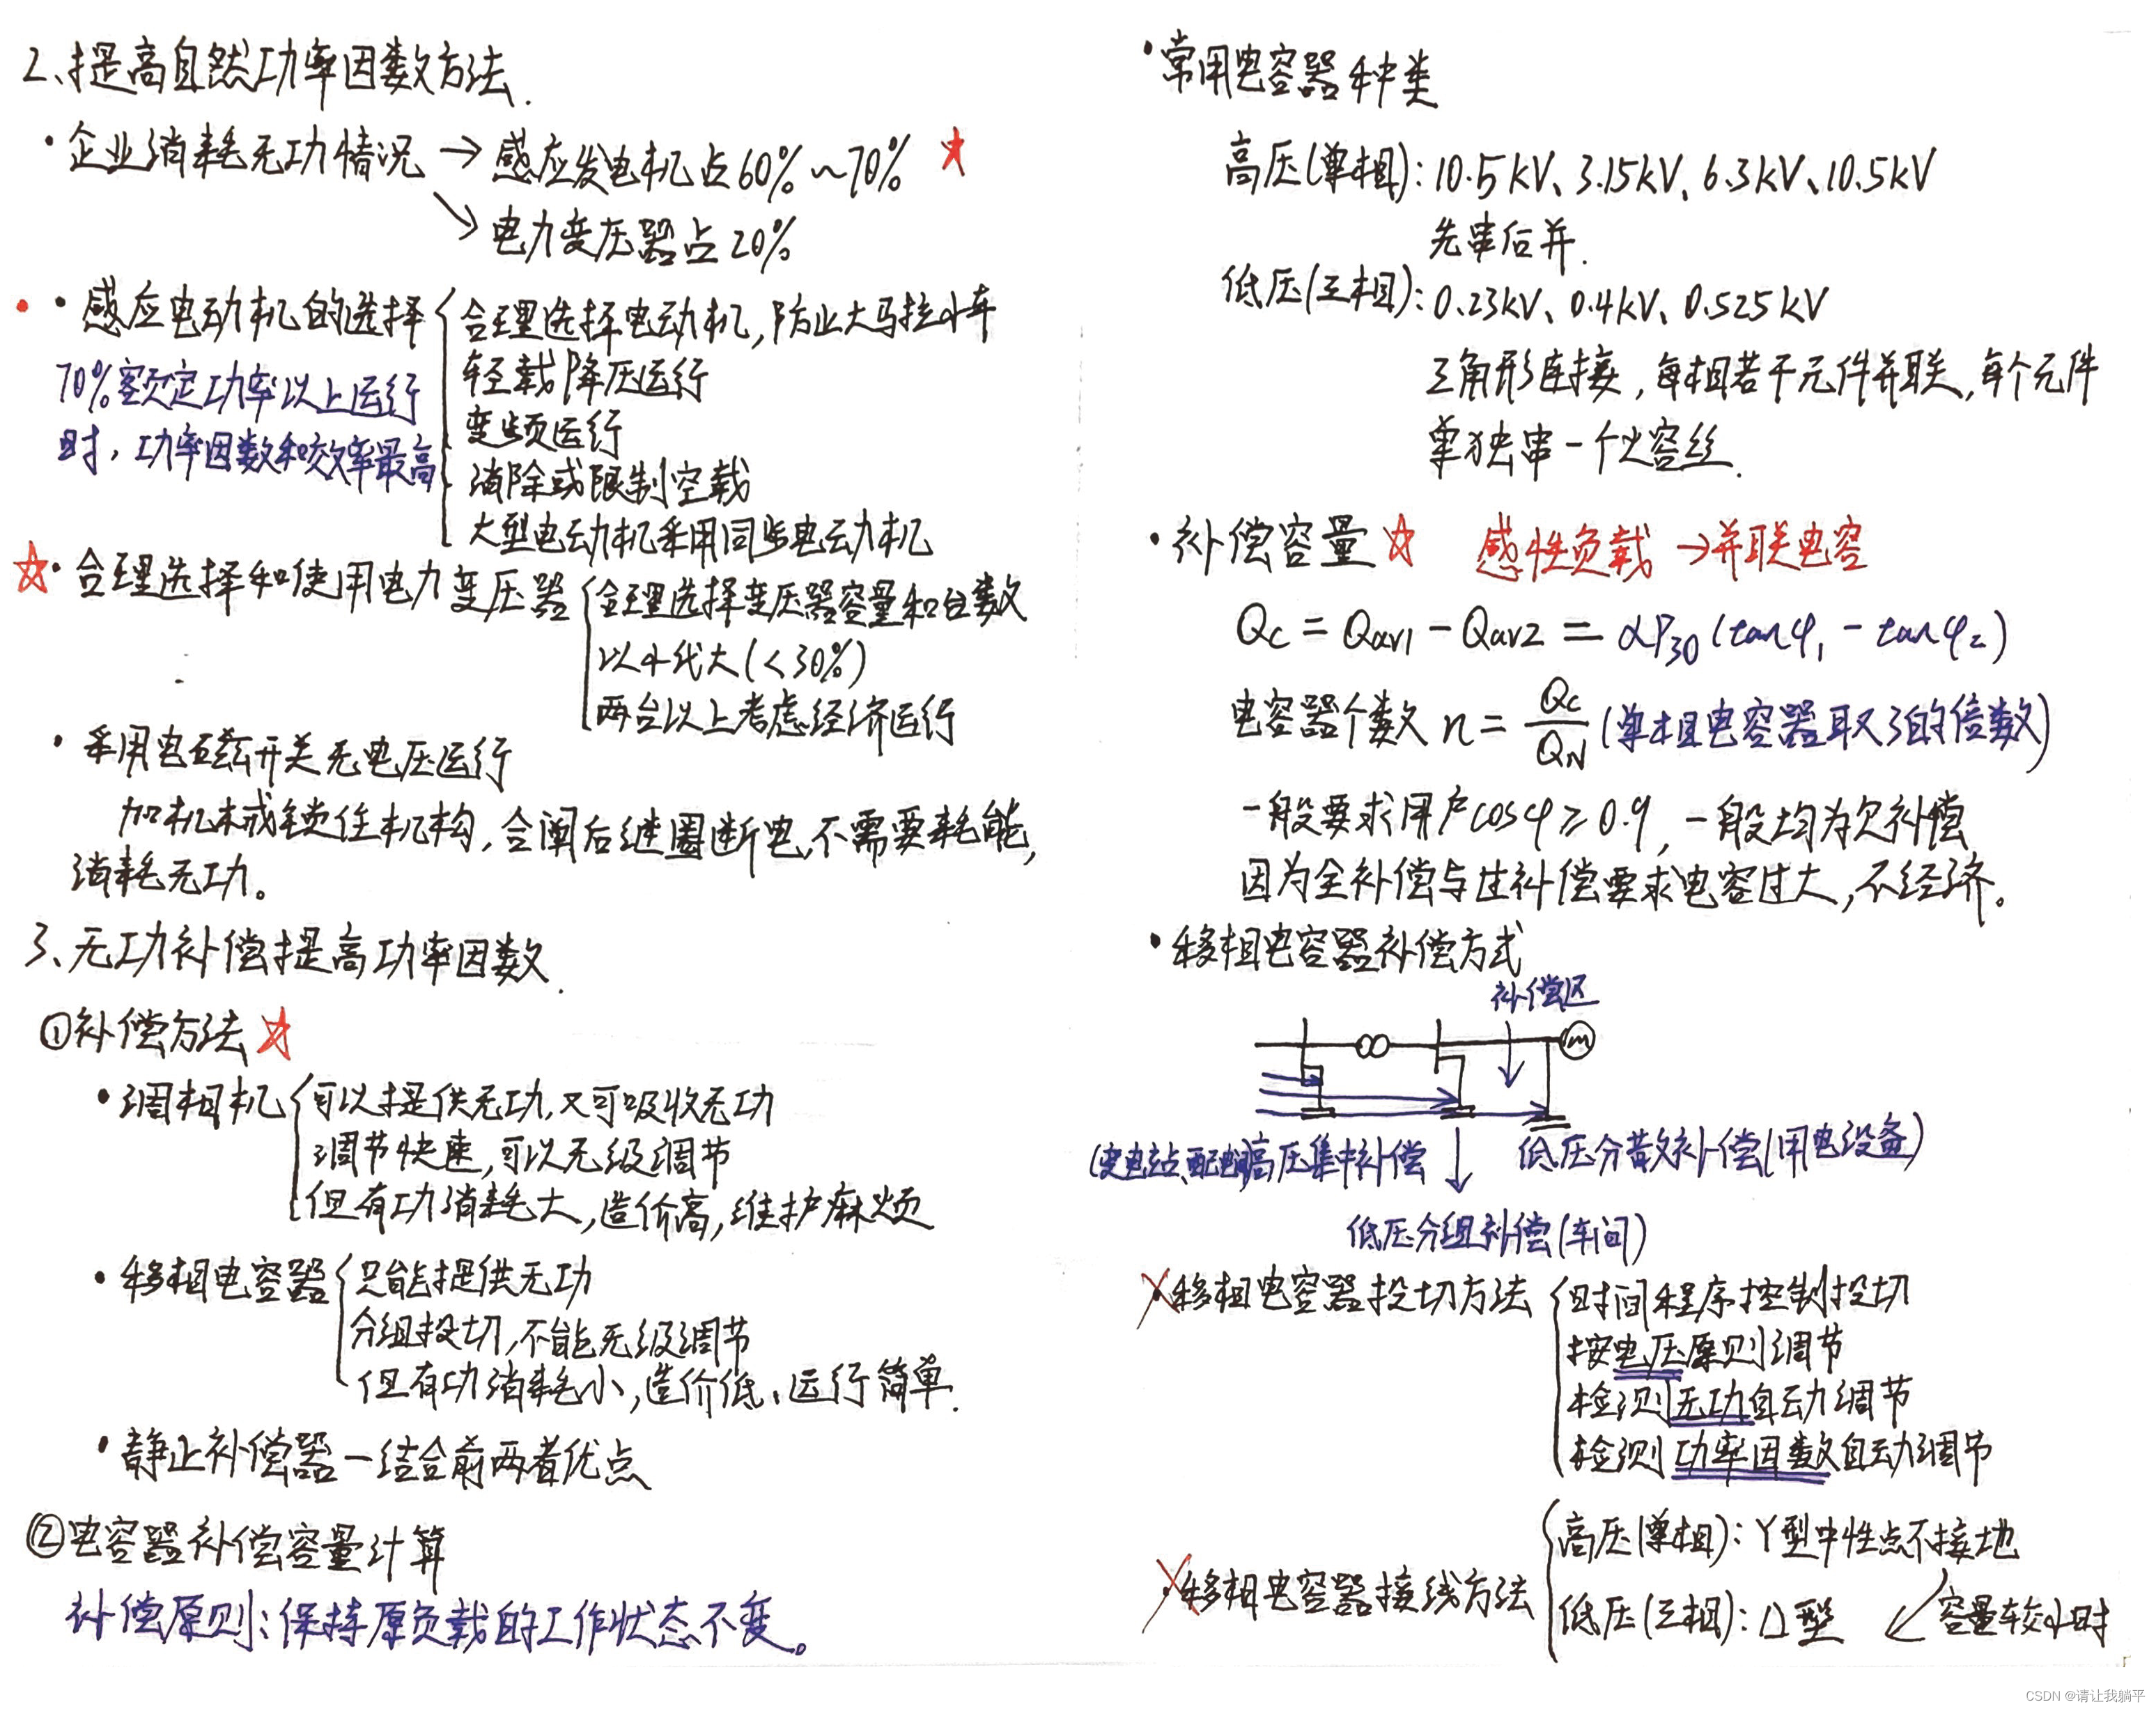 2、提高自然功率因数方法.
·企业消耗无功情况 → 感应发电机占60%~70% ☆
↘ 电力变压器占20%
· 感应电动机的选择
70%额定功率以上运行
时，功率因数和效率最高
合理选择电动机,防止大马拉小车
轻载降压运行
变频运行
消除或限制空载
大型电动机采用同步电动机
☆·合理选择和使用电力变压器
合理选择变压器容量和台数
以小代大(<30%)
两台以上考虑经济运行
·采用电磁开关无电压运行
加机械锁住机构,合闸后线圈断电,不需要耗能,
消耗无功。
3、无功补偿提高功率因数.
①补偿方法☆
·调相机
可以提供无功,又可吸收无功
调节快速,可以无级调节
但有功消耗大,造价高,维护麻烦
·移相电容器
只能提供无功
分组投切,不能无级调节
但有功消耗小,造价低、运行简单.
·静止补偿器—结合前两者优点
②电容器补偿容量计算
补偿原则:保持原负载的工作状态不变。
·常用电容器种类
高压(单相):10.5kV、3.15kV、6.3kV、10.5kV
先串后并.
低压(三相):0.23kV、0.4kV、0.525kV
三角形连接,每相若干元件并联,每个元件
单独串一个火容丝.
·补偿容量☆ 感性负载→并联电容
Qc = Qav1 - Qav2 = αP30 (tanφ1 - tanφ2)
电容器个数 n = Qc/QN (单相电容器取3的倍数)
一般要求用户cosφ≥0.9,一般均为欠补偿
因为全补偿与过补偿要求电容过大,不经济。
·移相电容器补偿方式
补偿区
M
(变电站、配电)高压集中补偿
低压分散补偿(用电设备)
低压分组补偿(车间)
·移相电容器投切方法
时间程序控制投切
按电压原则调节
检测无功自动调节
检测功率因数自动调节
·移相电容器接线方法
高压(单相):Y型中性点不接地
低压(三相):△型 ↙容量较小时
CSDN @请让我躺平